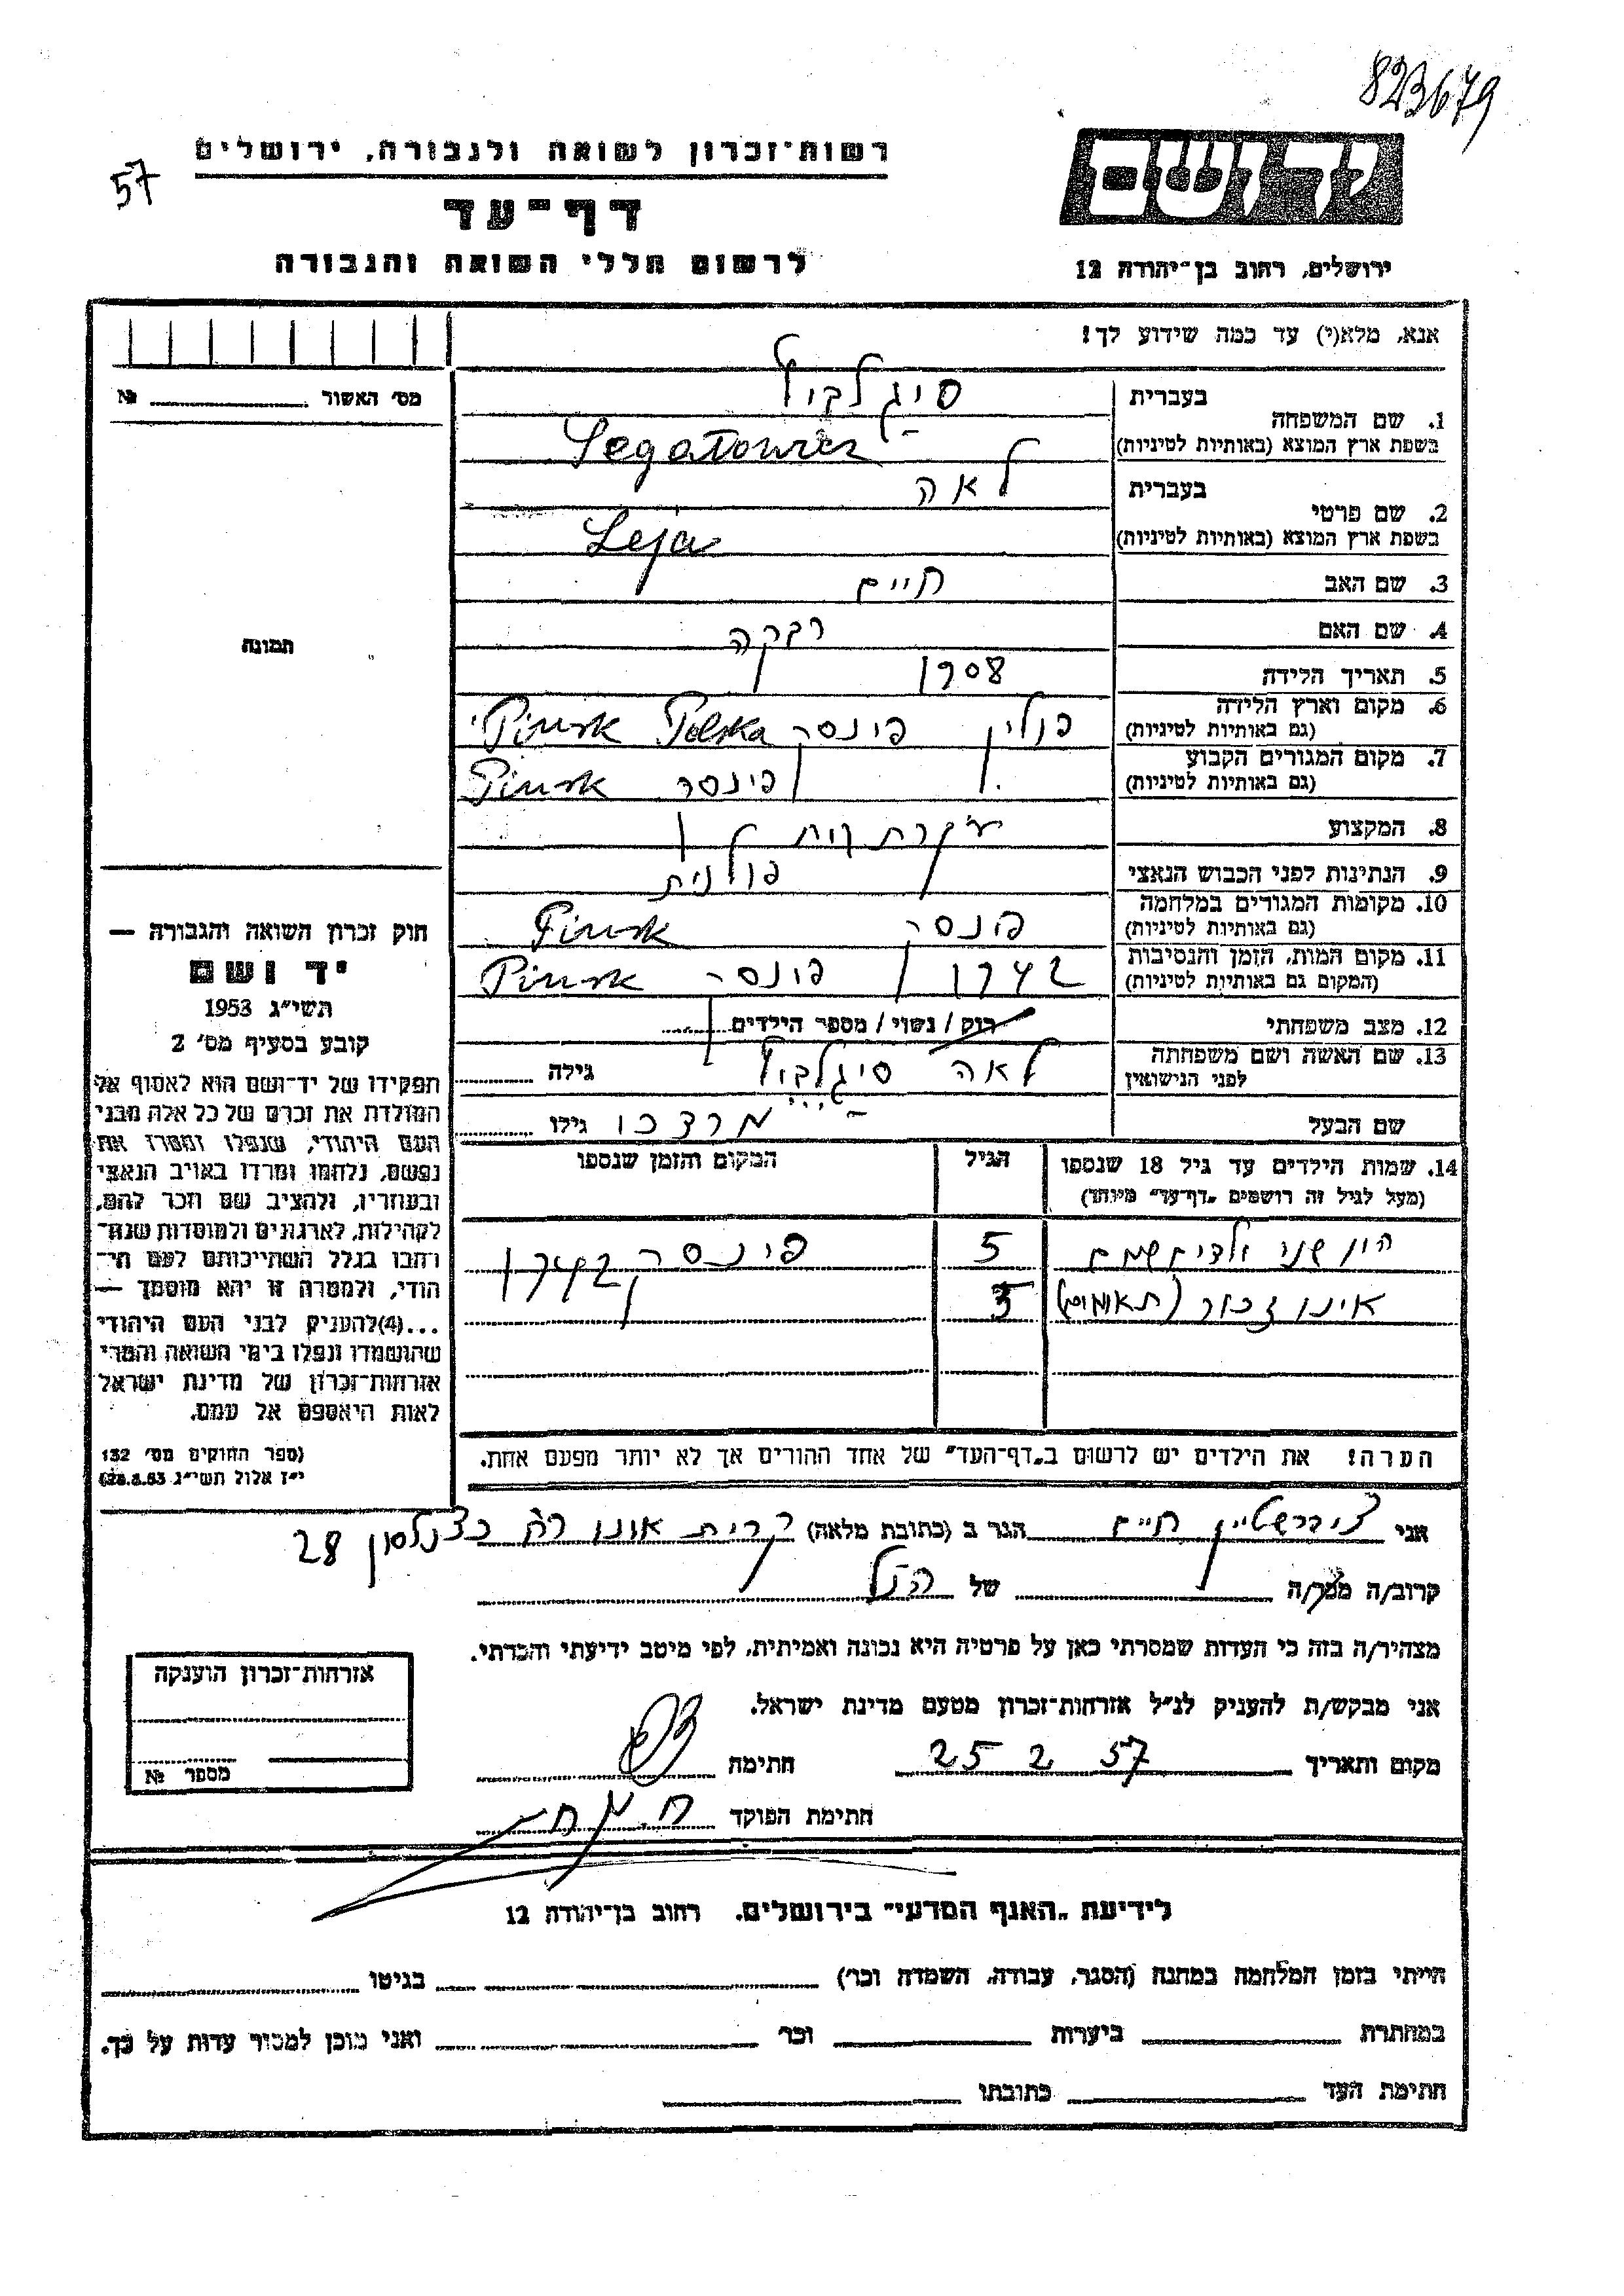 823679
57
רשות־זכרון לשואה ולגבורה, ירושלים
דף־עד
לרשום חללי השואה והגבורה
ידושם
ירושלים, רחוב בן־יהודה 12
אנא, מלא(י) עד כמה שידוע לך!
מס' האשור № 
1. שם המשפחה בעברית
בשפת ארץ המוצא (באותיות לטיניות)
2. שם פרטי בעברית לאה
בשפת ארץ המוצא (באותיות לטיניות) Leja
3. שם האב חיים
4. שם האם רבקה
5. תאריך הלידה 1908
6. מקום וארץ הלידה (גם באותיות לטיניות) פולין פינסק Polska Pinsk
7. מקום המגורים הקבוע (גם באותיות לטיניות) פינסק Pinsk
8. המקצוע עקרת בית
9. הנתינות לפני הכבוש הנאצי פולנית
10. מקומות המגורים במלחמה (גם באותיות לטיניות) פינסק Pinsk
11. מקום המות, הזמן והנסיבות (המקום גם באותיות לטיניות) 1942 פינסק Pinsk
12. מצב משפחתי רוק / נשוי / מספר הילדים
13. שם האשה ושם משפחתה לפני הנישואין לאה גילה
שם הבעל מרדכי גילו
14. שמות הילדים עד גיל 18 שנספו
(מעל לגיל זה רושמים "דף־עד" מיוחד)
הגיל
המקום והזמן שנספו
היו שני ילדים שמם 5 פינסק 1942
אינו זכור (תאומים) 5
הערה! את הילדים יש לרשום ב"דף־העד" של אחד ההורים אך לא יותר מפעם אחת.
תמונה
חוק זכרון השואה והגבורה —
יד ושם
תשי"ג 1953
קובע בסעיף מס' 2
תפקידו של יד־ושם הוא לאסוף אל
המולדת את זכרם של כל אלה מבני
העם היהודי, שנפלו ומסרו את
נפשם, נלחמו ומרדו באויב הנאצי
ובעוזריו, ולהציב שם וזכר להם,
לקהילות, לארגונים ולמוסדות שנח־
רבו בגלל השתייכותם לעם הי־
הודי, ולמטרה זו יהא מוסמך —
...(4) להעניק לבני העם היהודי
שהושמדו ונפלו בימי השואה והמרי
אזרחות־זכרון של מדינת ישראל
לאות היאספם אל עמם.
(ספר החוקים מס' 132
י"ז אלול תשי"ג 28.8.53)
אני חיים הגר ב (כתובת מלאה) קרית אונו רח כצנלסון 28
קרוב/ה מכר/ה של הנ"ל
מצהיר/ה בזה כי העדות שמסרתי כאן על פרטיה היא נכונה ואמיתית, לפי מיטב ידיעתי והכרתי.
אני מבקש/ת להעניק לנ"ל אזרחות־זכרון מטעם מדינת ישראל.
מקום ותאריך 25 2 57 חתימה
חתימת הפוקד
אזרחות־זכרון הוענקה
מספר №
לידיעת "האגף המדעי" בירושלים, רחוב בן־יהודה 12
הייתי בזמן המלחמה במחנה (הסגר, עבודה, השמדה וכו') בגיטו
במחתרת ביערות וכו' ואני מוכן למסור עדות על כך.
חתימת העד כתובתו